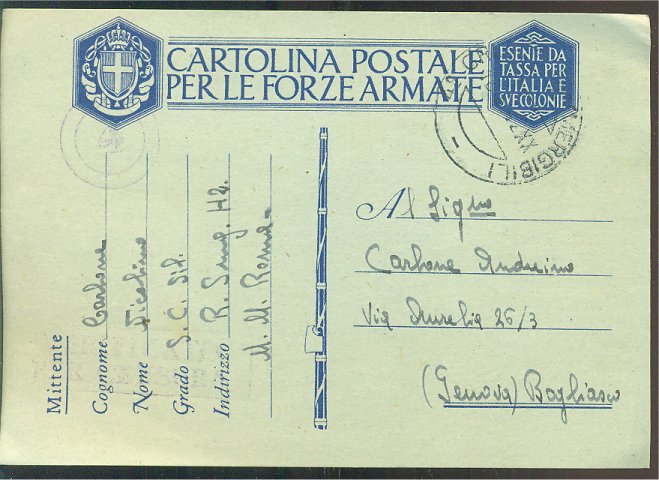 CARTOLINA POSTALE
PER LE FORZE ARMATE
ESENTE DA
TASSA PER
L'ITALIA E
SVE COLONIE
MERGIBILI
Mittente
Cognome Carbone
Nome Nicolino
Grado S. C. Sil.
Indirizzo R. Smg. H2.
M. M. Roma
Al Signo
Carbone Andreino
Via Aurelia 26/3
(Genova) Bogliasco